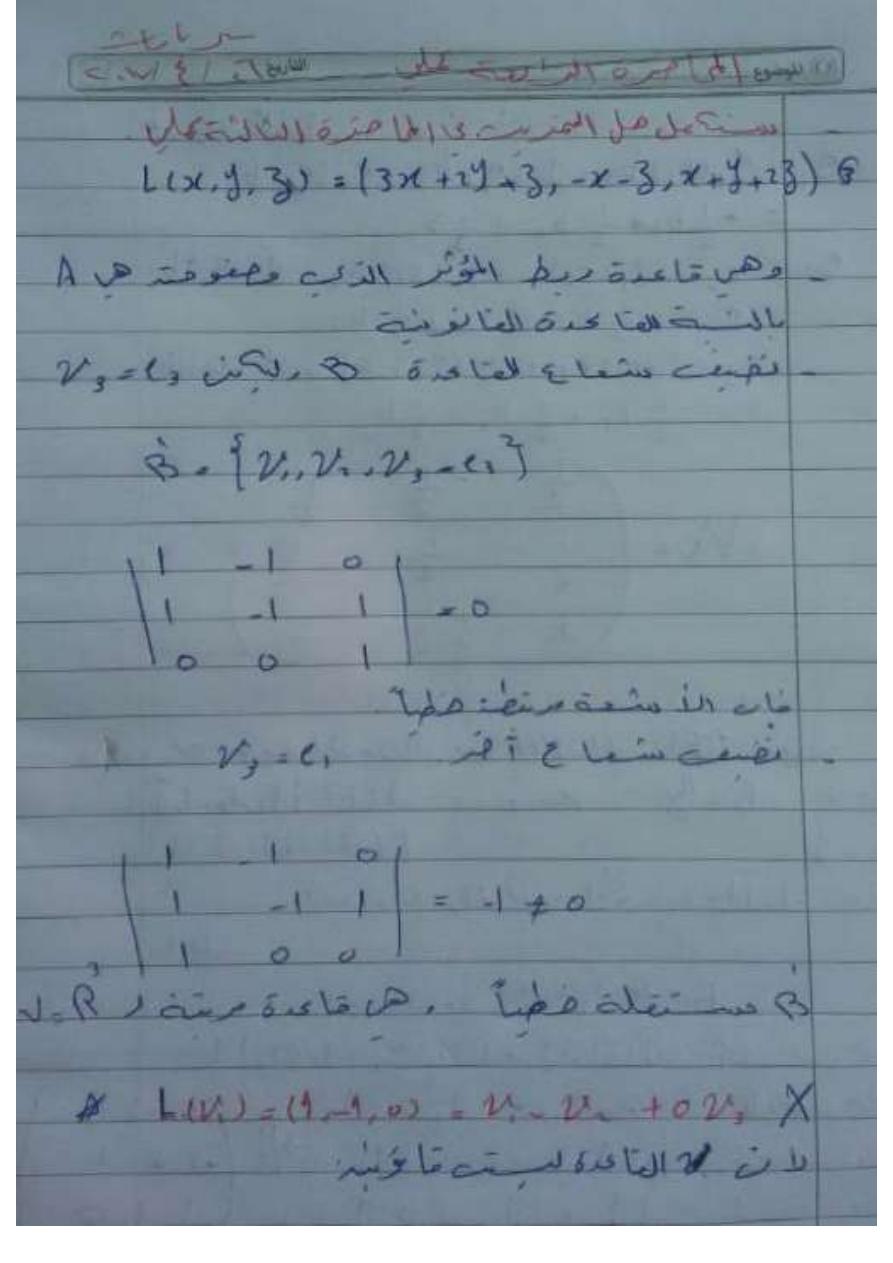 الموضوع المحاضرة الرابعة عملي التاريخ
سنكمل حل التمرين في المحاضرة الثالثة عملي
L(x, y, z) = (3x + 2y + z, -x - z, x + y + 2z)
- وهي قاعدة ربط المؤثر الذي مصفوفته هي A
بالنسبة للقاعدة القانونية
- نضيف شعاع للقاعدة B وليكن v₃ = e₃
B' = {v₁, v₂, v₃ = e₃}
| 1 -1 0 |
| 1 -1 1 | = 0
| 0 0 1 |
فإن الأشعة مرتبطة خطياً
- نضيف شعاع آخر v₃ = e₁
| 1 -1 0 |
| 1 -1 1 | = -1 ≠ 0
| 1 0 0 |
B' مستقلة خطياً , هي قاعدة مرتبة لـ V = R³
L(v₁) = (1, -1, 0) = v₁ - v₂ + 0v₃ X
لأن القاعدة ليست قانونية